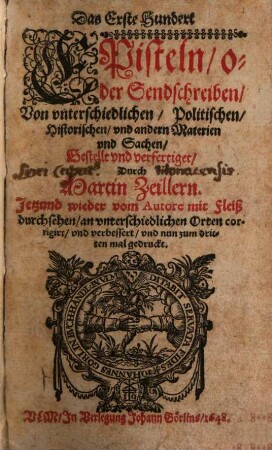 Das Erste Hundert
EPisteln/ o-
der Sendschreiben/
Von vnterschiedlichen/ Politischen/
Historischen/ vnd andern Materien
vnd Sachen/
Gestelt vnd verfertiget/
Durch
Martin Zeillern.
Jetzund wieder vom Autore mit Fleiß
durchsehen/ an vnterschiedlichen Orten cor-
rigirt/ vnd verbessert/ vnd nun zum drit-
ten mal gedruckt.
DITABIT SERVATA FIDES
IOHANNES GÖRLIN
VLM/ In Verlegung Johann Görlins/ 1648.